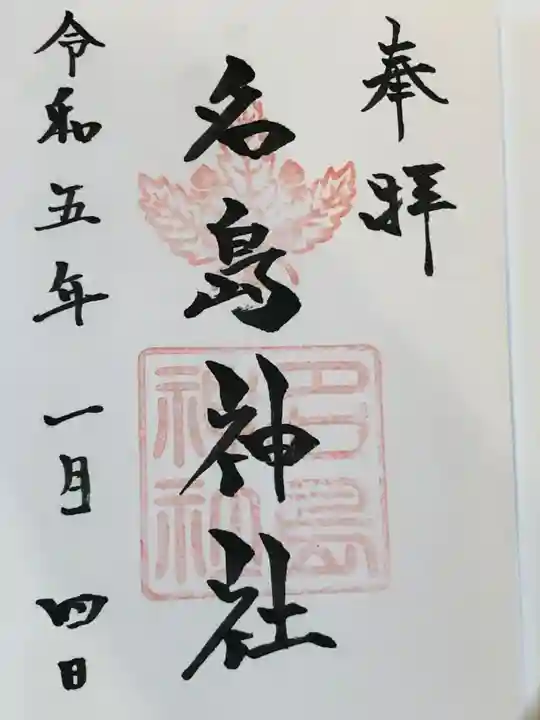 奉拝
名島神社
名島神社
令和五年一月四日